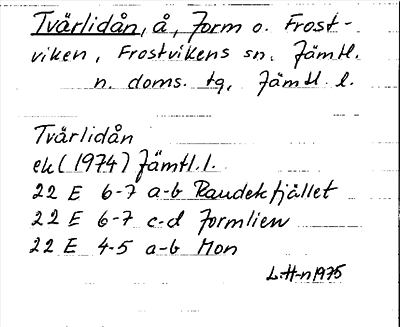 Tvärlidån, å, Jorm o. Frost-
viken, Frostvikens sn. Jämtl.
n. doms. tg, Jämtl l.
Tvärlidån
ek (1974) Jämtl. l.
22 E 6-7 a-b Raudekfjället
22 E 6-7 c-d Jormlien
22 E 4-5 a-b Mon
L.H-n 1975